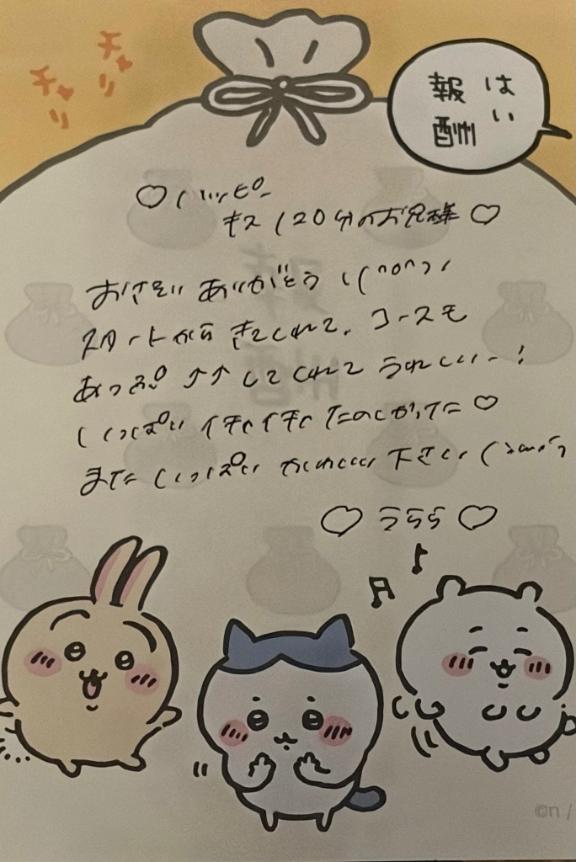 はい
報酬
チャリ
チャリ
♡ハッピー
キス120分のお兄様♡
おさそい ありがとう\(^o^)/
スタートから きてくれて、コースも
あっぷ↑↑してくれて うれしいー!
いっぱい イチャイチャ たのしかった♡
また いっぱい かわいがって 下さい
♡ うらら ♡
©n